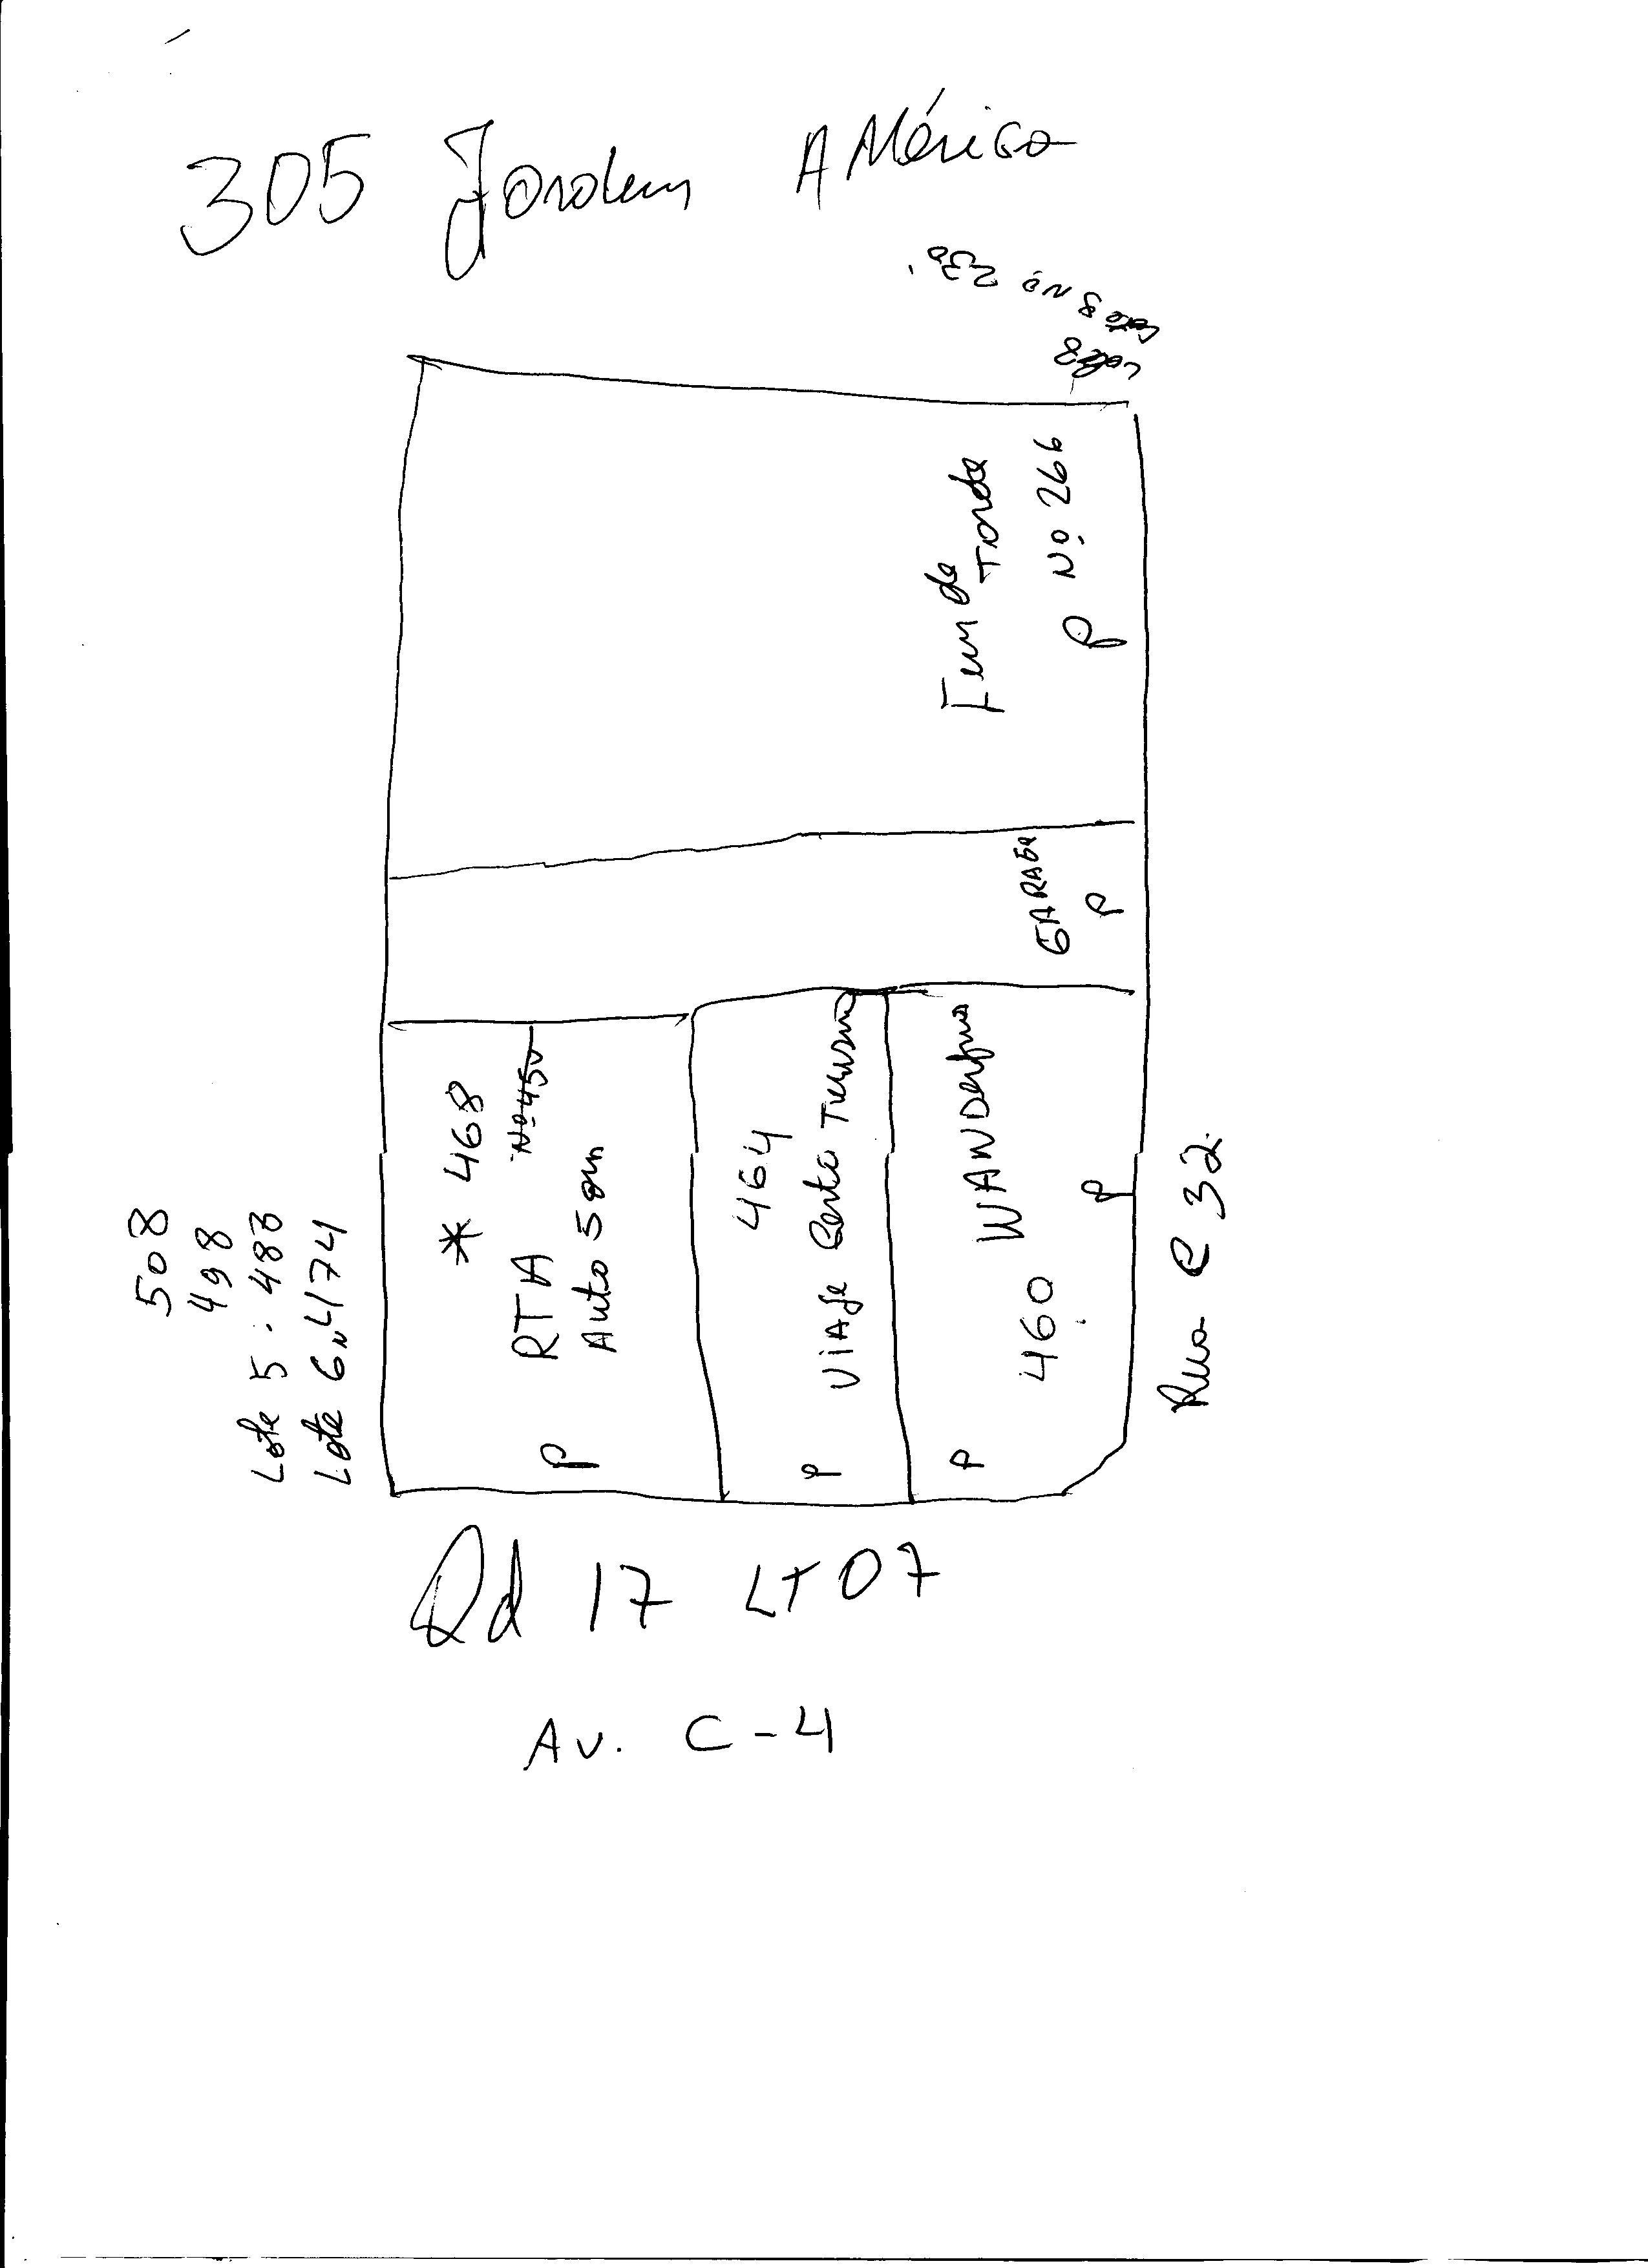 305 Jardim América
Lote 8 Nº 230
Lote 8
Fim de
Tarde
Nº 266
P
GARAGe
P
* 468
Nº 450
RTA
Auto Som
P
464
Viaje Certo Turismo
P
WANDerfus
460
P
P
Rua C 32
508
498
Lote 5. 483
Lote 6 N 474
Qd 17 LT 07
Av. C-4